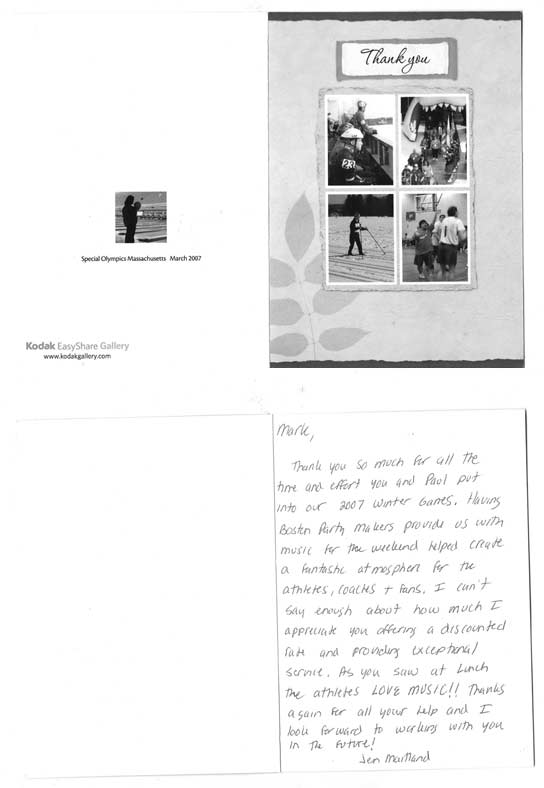 Thank you
23
Special Olympics Massachusetts March 2007
Kodak EasyShare Gallery
www.kodakgallery.com
Mark,
Thank you so much for all the
time and effort you and Paul put
into our 2007 Winter Games. Having
Boston Party Makers provide us with
music for the weekend helped create
a fantastic atmosphere for the
athletes, coaches + fans. I can't
say enough about how much I
appreciate you offering a discounted
rate and providing exceptional
service. As you saw at Lunch
the athletes LOVE MUSIC!! Thanks
again for all your help and I
look forward to working with you
in the future!
Jen Maitland